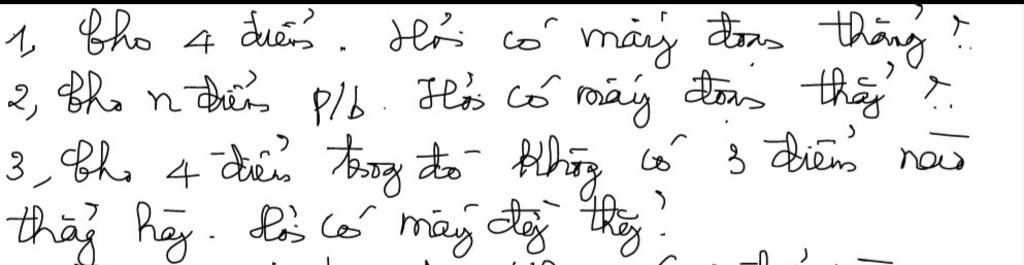 1, Cho 4 điểm. Hỏi có mấy đoạn thẳng?
2, Cho n điểm p/b. Hỏi có mấy đoạn thẳg?
3, Cho 4 điểm trog đó khôg có 3 điểm nào
thẳg hàg. Hỏi có mấy đg thẳg?